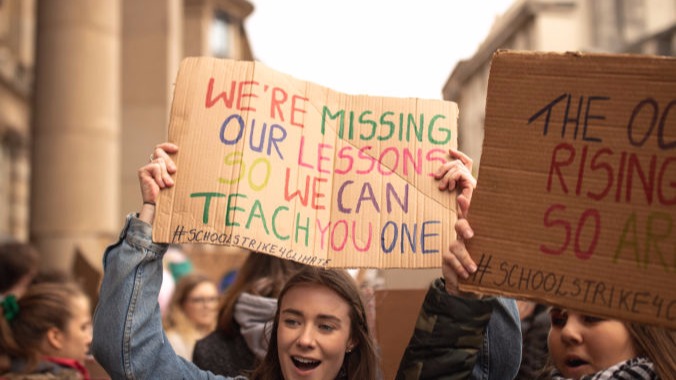 WE'RE MISSING
OUR LESSONS
SO WE CAN
TEACH YOU ONE
#SCHOOLSTRIKE4CLIMATE
THE OC
RISING
SO ARE
#SCHOOLSTRIKE4C